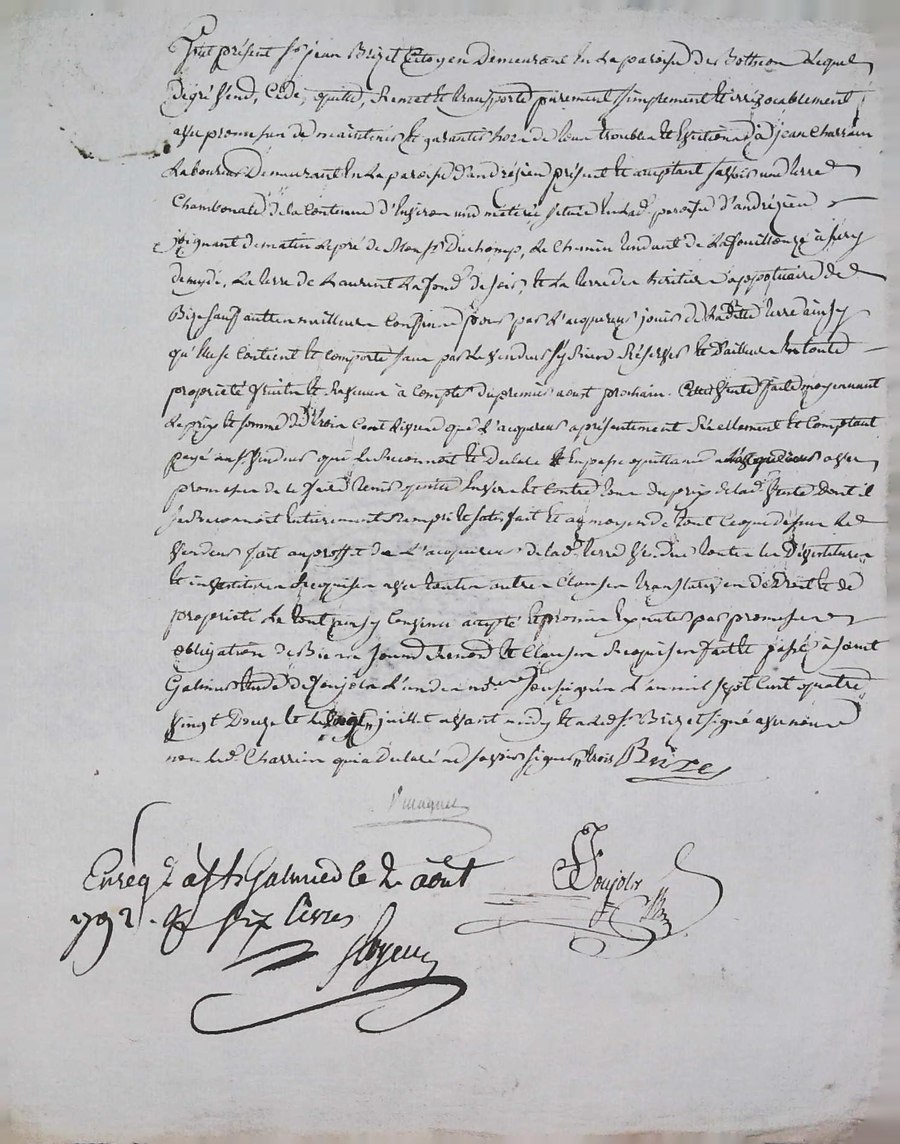 Fut présent sr jean Brizet Citoyen demeurant en la paroisse de Botheon lequel
de gré vend, Cède, quitte, Remet et transporte purement simplement et irrévocablement
avec promesse de maintenir et garantir hors de tous troubles et evictions à jean Charrain
Laboureur demeurant en la paroisse d'andrézieu présent et aceptant savoir une terre
Chambonale de la Contenue d'Environ une métérée située en lad. paroisse d'andrézieu
joignant de matin le pré de Mon sr Duchamp, le Chemin tendant de la fouillouze à
de midy, la terre de Laurent Lafond de soir, et la terre des heritiers de
Bize sauf autres meilleurs Confins jouir par l'acquereur de laditte terre ainsy
qu'elle se Contient et Comporte sans par le vendeur s'y Rien Réserver et d'ailleurs en toute
propriété fruits et Revenus à Compter du premier aoust prochain. Cette vente faite moyennant
le prix et somme de trois Cent livres que l'acquereur a présentement Réellement et Comptant
payé au vendeur qui le Reconnoit et declare et En passe quittance avec
promesse de le faire tenir quitte Envers et Contre tous du prix de lad. vente dont il
se Reconnoit Entierement Rempli et satisfait et au moyen de tout ce que dessus le
vendeur fait au proffit de l'acquereur de lad. terre vendue toutes les Devestitures
et investitures Requises avec toutes autres Clauses translatives de Droit et de
propriété le tout ainsy Convenu accepté et promis Executer par promesses
obligation de Biens soumis Renond et Clauses Requises fait et passé à saint
Galmier Etude de Soujols l'un des nores soussignés l'an mil sept Cent quatre
vingt Douze et le juillet avant midy et a led. sr Brizet signé avec nous
non led. Charrain qui a declaré ne savoir signer trois Brizet
Enreg.é à st Galmier le 2 août
792. R six livres
Soujols